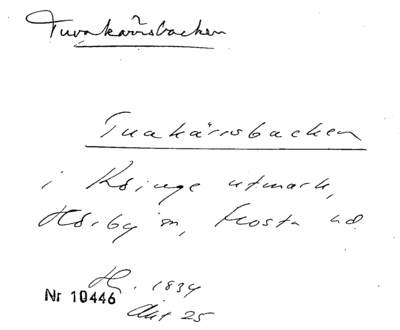 Tuvakärrsbacken
Tuakärrsbacken
i Ksinge utmark,
Hörby sn, Frosta hd
H. 1834
Nr 10446
Akt 25